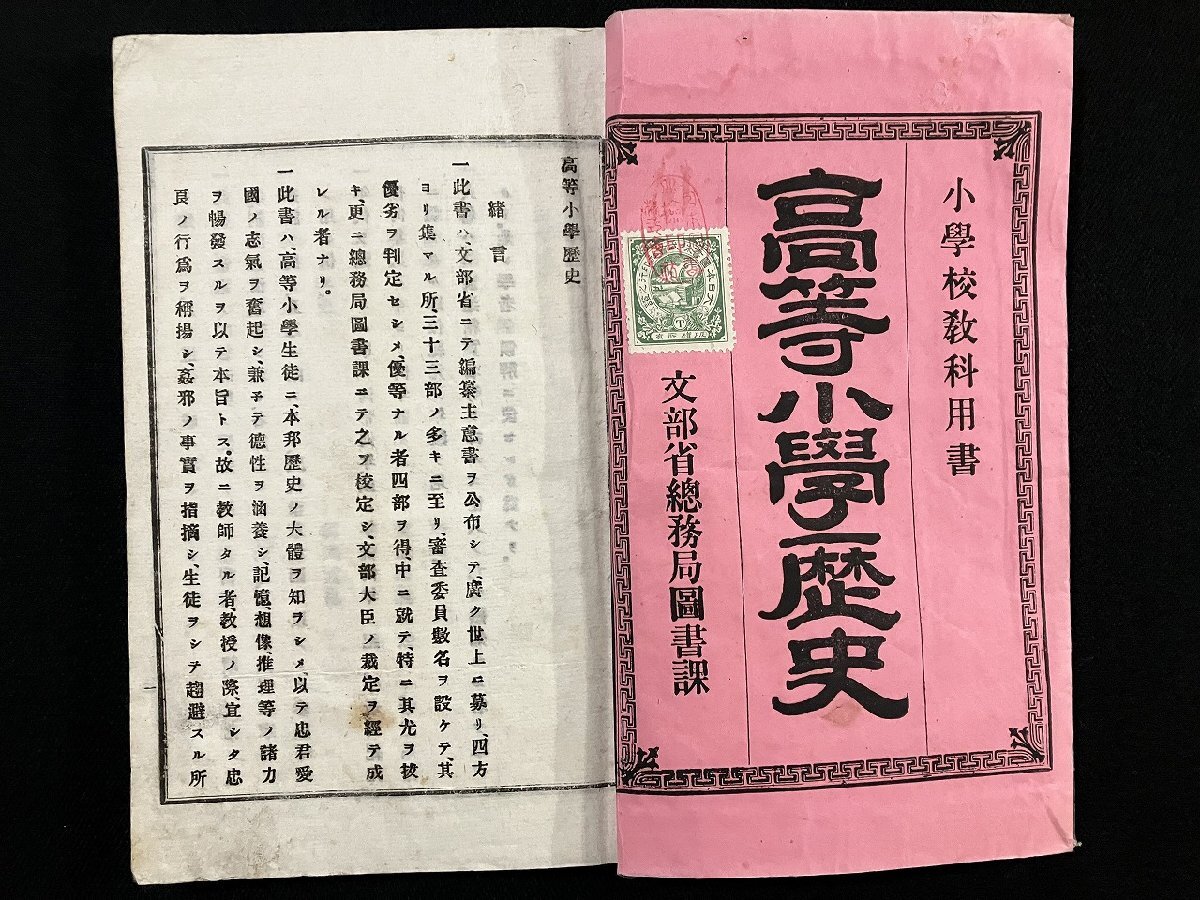 小學校敎科用書
高等小學歷史
文部省總務局圖書課
高等小學歷史
緒言
一此書ハ、文部省ニテ編纂主意書ヲ公布シテ、廣ク世上ニ募リ、四方
ヨリ集マル所、三十三部ノ多キニ至リ、審査委員數名ヲ設ケテ、其
優劣ヲ判定セシメ、優等ナル者四部ヲ得、中ニ就テ、特ニ其尤ヲ拔
キ、更ニ總務局圖書課ニテ之ヲ校定シ、文部大臣ノ裁定ヲ經テ成
レル者ナリ。
一此書ハ、高等小學生徒ニ、本邦歷史ノ大體ヲ知ラシメ、以テ忠君愛
國ノ志氣ヲ奮起シ、兼子テ德性ヲ涵養シ、記憶、想像、推理等ノ諸力
ヲ暢發スルヲ以テ本旨トス。故ニ敎師タル者、敎授ノ際、宜シク忠
良ノ行爲ヲ稱揚シ、姦邪ノ事實ヲ指摘シ、生徒ヲシテ趨避スル所
一